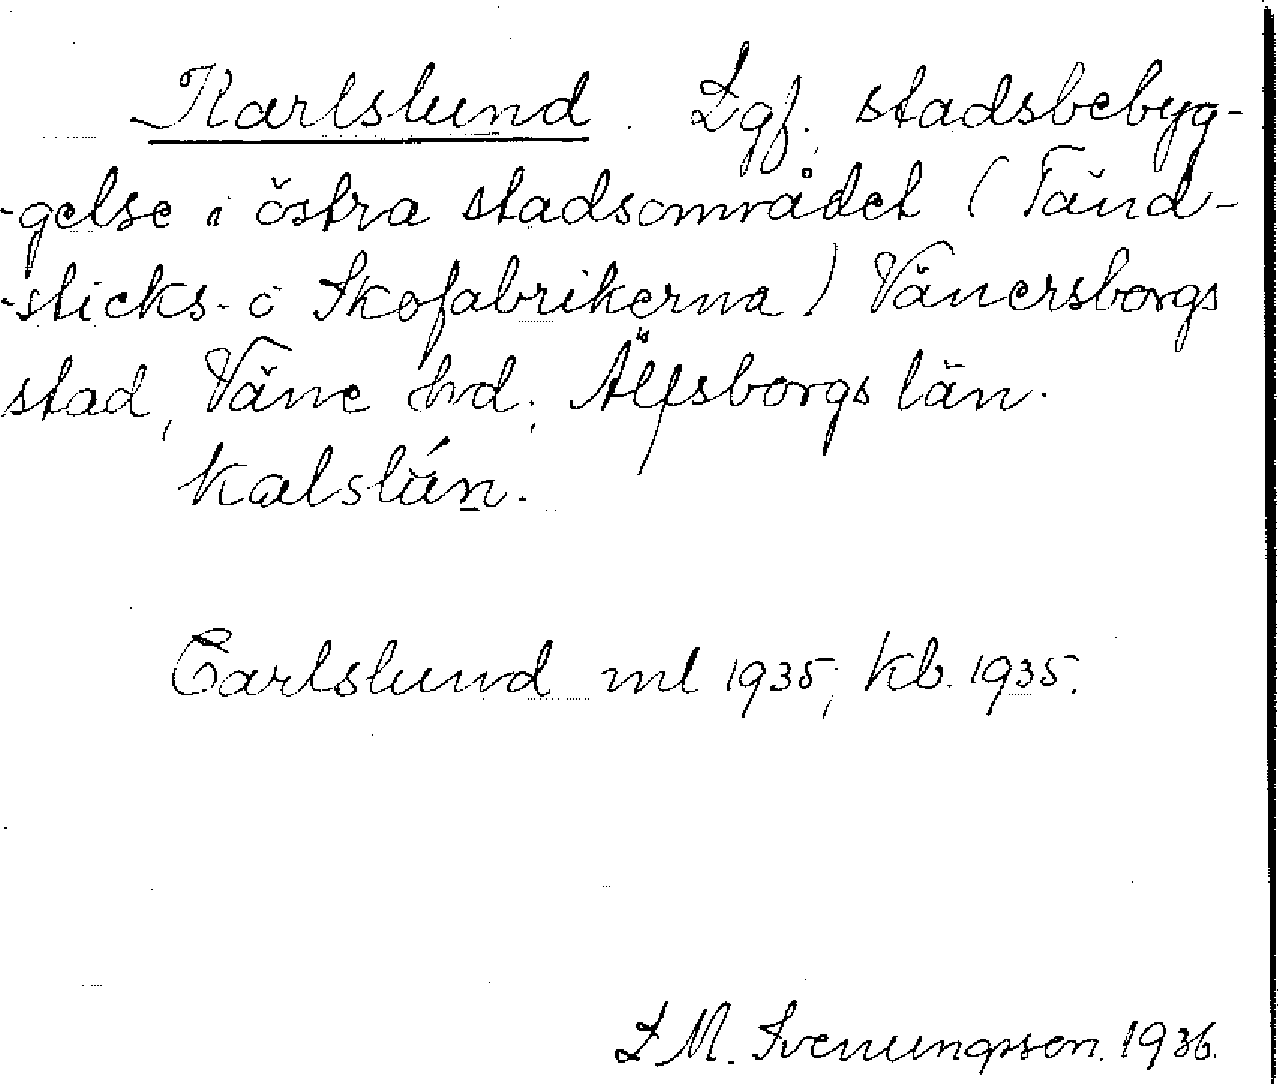 Karlslund. Lgf. stadsbebyg-
-gelse i östra stadsområdet (Tänd-
-sticks- o Skofabrikerna) Vänersborgs
stad, Väne hd. Älfsborgs län.
Carlslund ml 1935, kb. 1935.
L M. Svenungsson. 1936.